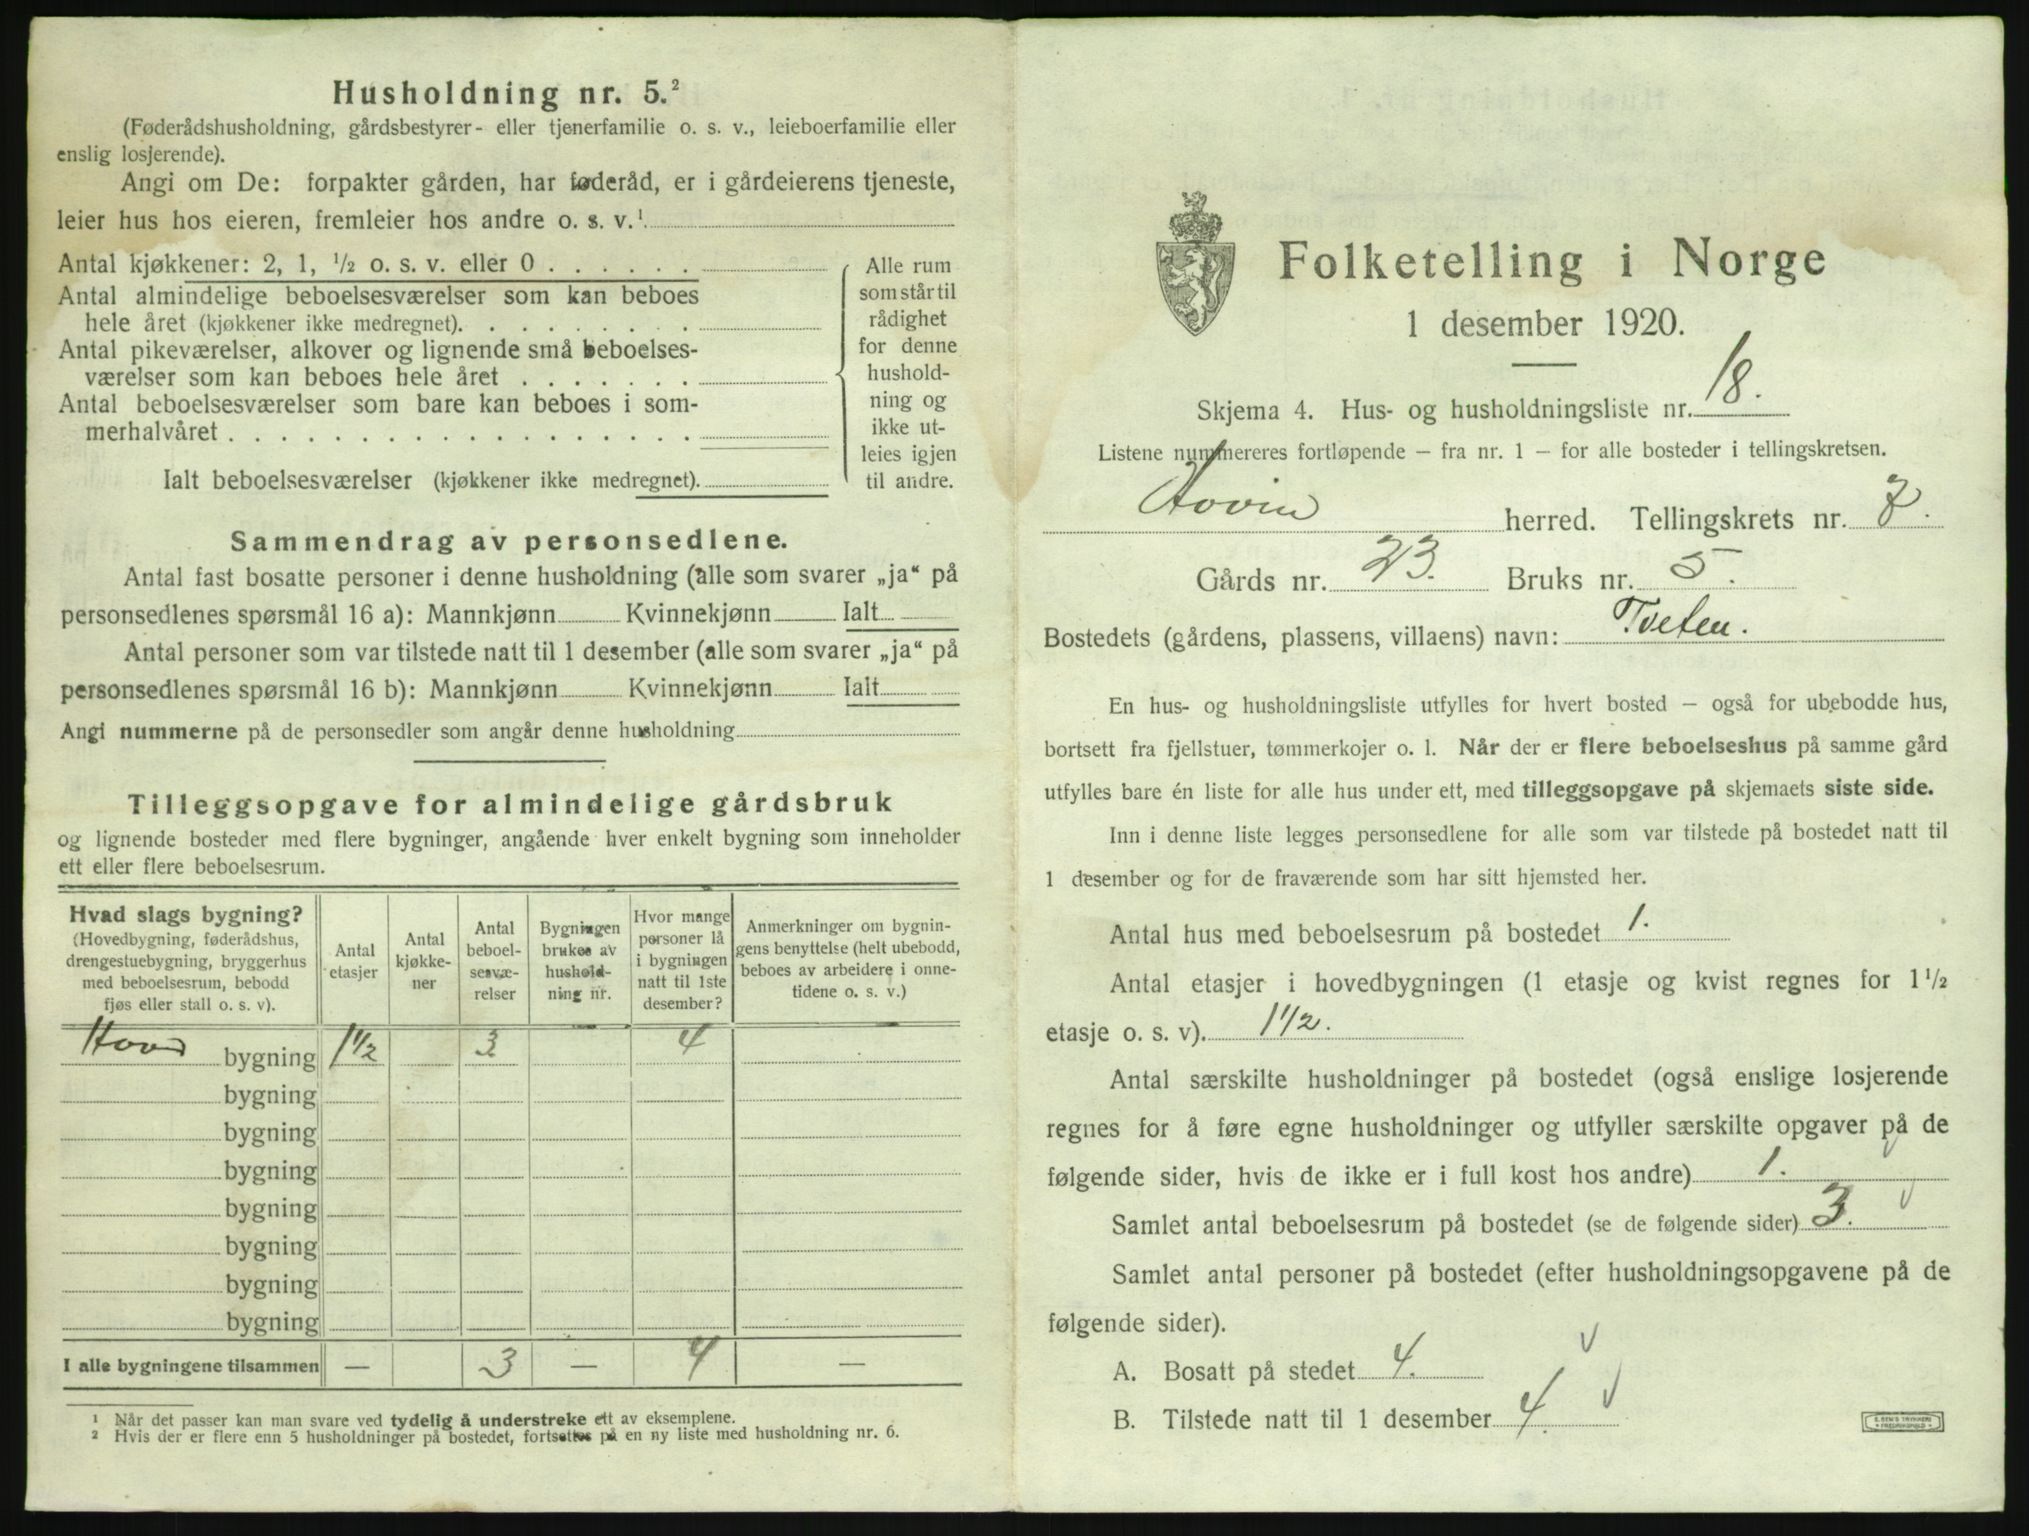 Husholdning nr. 5.²
(Føderådshusholdning, gårdsbestyrer- eller tjenerfamilie o. s. v., leieboerfamilie eller
enslig losjerende).
Angi om De: forpakter gården, har føderåd, er i gårdeierens tjeneste,
leier hus hos eieren, fremleier hos andre o. s. v.¹
Antal kjøkkener: 2, 1, ½ o. s. v. eller 0
Antal almindelige beboelsesværelser som kan beboes
hele året (kjøkkener ikke medregnet).
Antal pikeværelser, alkover og lignende små beboelses-
værelser som kan beboes hele året
Antal beboelsesværelser som bare kan beboes i som-
merhalvåret
Ialt beboelsesværelser (kjøkkener ikke medregnet).
Alle rum
som står til
rådighet
for denne
hushold-
ning og
ikke ut-
leies igjen
til andre.
Sammendrag av personsedlene.
Antal fast bosatte personer i denne husholdning (alle som svarer „ja“ på
personsedlenes spørsmål 16 a): Mannkjønn Kvinnekjønn Ialt
Antal personer som var tilstede natt til 1 desember (alle som svarer „ja“ på
personsedlenes spørsmål 16 b): Mannkjønn Kvinnekjønn Ialt
Angi nummerne på de personsedler som angår denne husholdning
Tilleggsopgave for almindelige gårdsbruk
og lignende bosteder med flere bygninger, angående hver enkelt bygning som inneholder
ett eller flere beboelsesrum.
Hvad slags bygning?
(Hovedbygning, føderådshus,
drengestuebygning, bryggerhus
med beboelsesrum, bebodd
fjøs eller stall o. s. v).
Antal
etasjer
Antal
kjøkke-
ner
Antal
beboel-
sesvæ-
relser
Bygningen
brukes av
hushold-
ning nr.
Hvor mange
personer lå
i bygningen
natt til 1ste
desember?
Anmerkninger om bygnin-
gens benyttelse (helt ubebodd,
beboes av arbeidere i onne-
tidene o. s. v.)
Hoved bygning 1½ 3 4
bygning
bygning
bygning
bygning
bygning
bygning
bygning
I alle bygningene tilsammen — 3 — 4 —
¹ Når det passer kan man svare ved tydelig å understreke ett av eksemplene.
² Hvis der er flere enn 5 husholdninger på bostedet, fortsettes på en ny liste med husholdning nr. 6.
Folketelling i Norge
1 desember 1920.
Skjema 4. Hus- og husholdningsliste nr. 18.
Listene nummereres fortløpende – fra nr. 1 – for alle bosteder i tellingskretsen.
Hovin herred. Tellingskrets nr. 7.
Gårds nr. 23. Bruks nr. 5.
Bostedets (gårdens, plassens, villaens) navn: Tveten.
En hus- og husholdningsliste utfylles for hvert bosted – også for ubebodde hus,
bortsett fra fjellstuer, tømmerkojer o. l. Når der er flere beboelseshus på samme gård
utfylles bare én liste for alle hus under ett, med tilleggsopgave på skjemaets siste side.
Inn i denne liste legges personsedlene for alle som var tilstede på bostedet natt til
1 desember og for de fraværende som har sitt hjemsted her.
Antal hus med beboelsesrum på bostedet 1.
Antal etasjer i hovedbygningen (1 etasje og kvist regnes for 1½
etasje o. s. v). 1½.
Antal særskilte husholdninger på bostedet (også enslige losjerende
regnes for å føre egne husholdninger og utfyller særskilte opgaver på de
følgende sider, hvis de ikke er i full kost hos andre) 1.
Samlet antal beboelsesrum på bostedet (se de følgende sider) 3.
Samlet antal personer på bostedet (efter husholdningsopgavene på de
følgende sider).
A. Bosatt på stedet 4.
B. Tilstede natt til 1 desember 4.